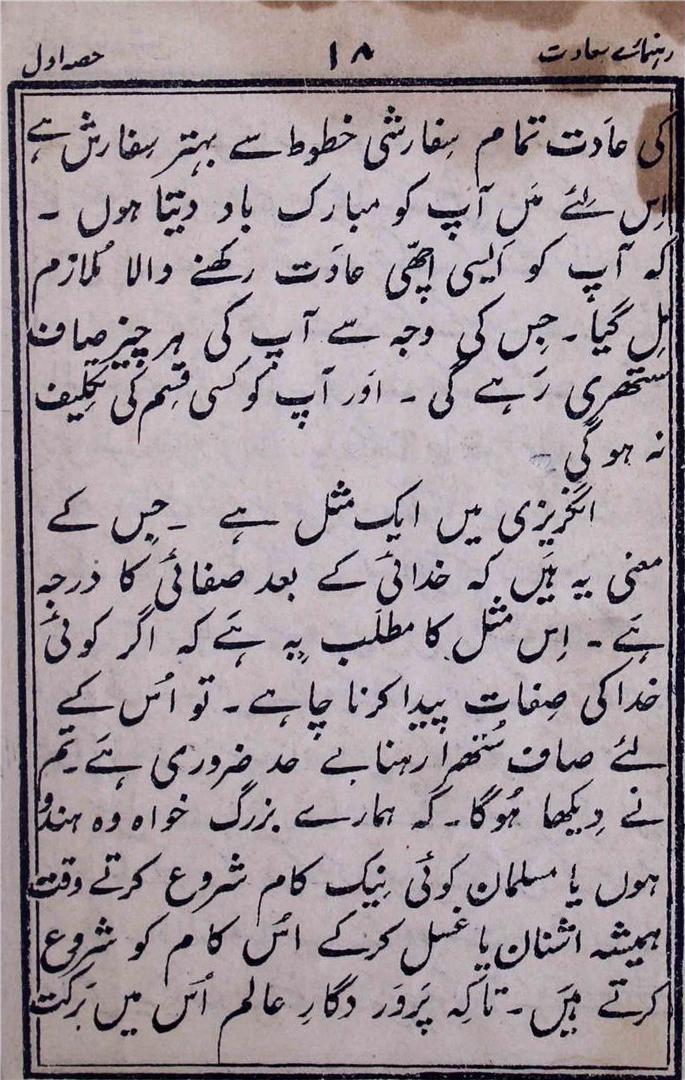 رہنمائے سعادت ۱۸ حصہ اول
کی عادَت تمام سِفارشی خطوط سے بہتر سِفارِش ہے
اِس لئے مَیں آپ کو مبارک باد دیتا ہوں ۔
کہ آپ کو اَیسی اچھّی عادَت رکھنے والا مُلازم
مِل گیا ۔ جِس کی وجہ سے آپ کی ہر چیز صاف
ستھری رَہے گی ۔ اَور آپ کو کسی قِسم کی تکلیف
نہ ہو گی ۔
انگریزی میں ایک مثل ہے ۔ جِس کے
معنی یہ ہَیں کہ خدائی کے بعد صفائی کا درجہ
ہَے ۔ اِس مثل کا مطلَب یہ ہَے کہ اگر کوئی
خدا کی صِفات پیدا کرنا چاہے ۔ تو اُس کے
لئے صاف سُتھرا رہنا بے حد ضروری ہَے ۔ تم
نے دِیکھا ہُوگا ۔ کہ ہمارے بزرگ خواہ وہ ہندو
ہوں یا مسلمان کوئی نیک کام شروع کرتے وقت
ہمیشہ اشنان یا غسل کرکے اُس کام کو شروع
کرتے ہَیں ۔ تاکہ پَروَر دگارِ عالم اُس میں بَرکت